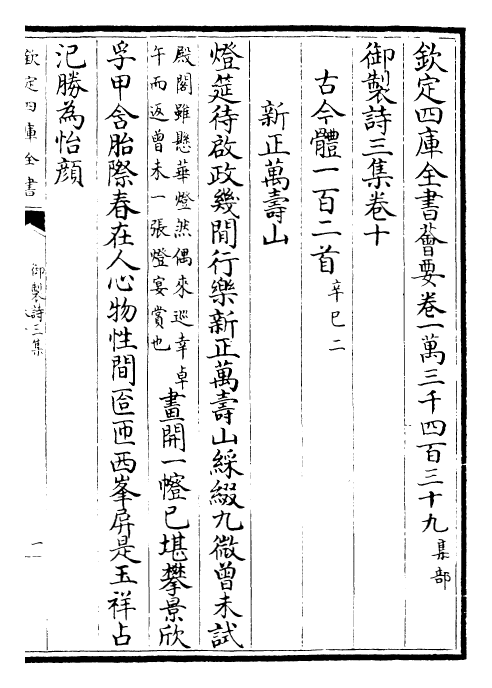 欽定四庫全書薈要卷一萬三千四百三十九集部
御製詩三集卷十
古今體一百二首辛巳二
新正萬壽山
燈筵待啟政幾閒行樂新正萬壽山綵綴九微曾未試
殿閣雖懸華燈然偶來巡幸卓
午而返曾未一張燈宴賞也
畫開一幰已堪攀景欣
孚甲含胎際春在人心物性間匼匝西峯屏是玉祥占
氾勝為怡顔
欽定四庫全書
御製詩三集
一